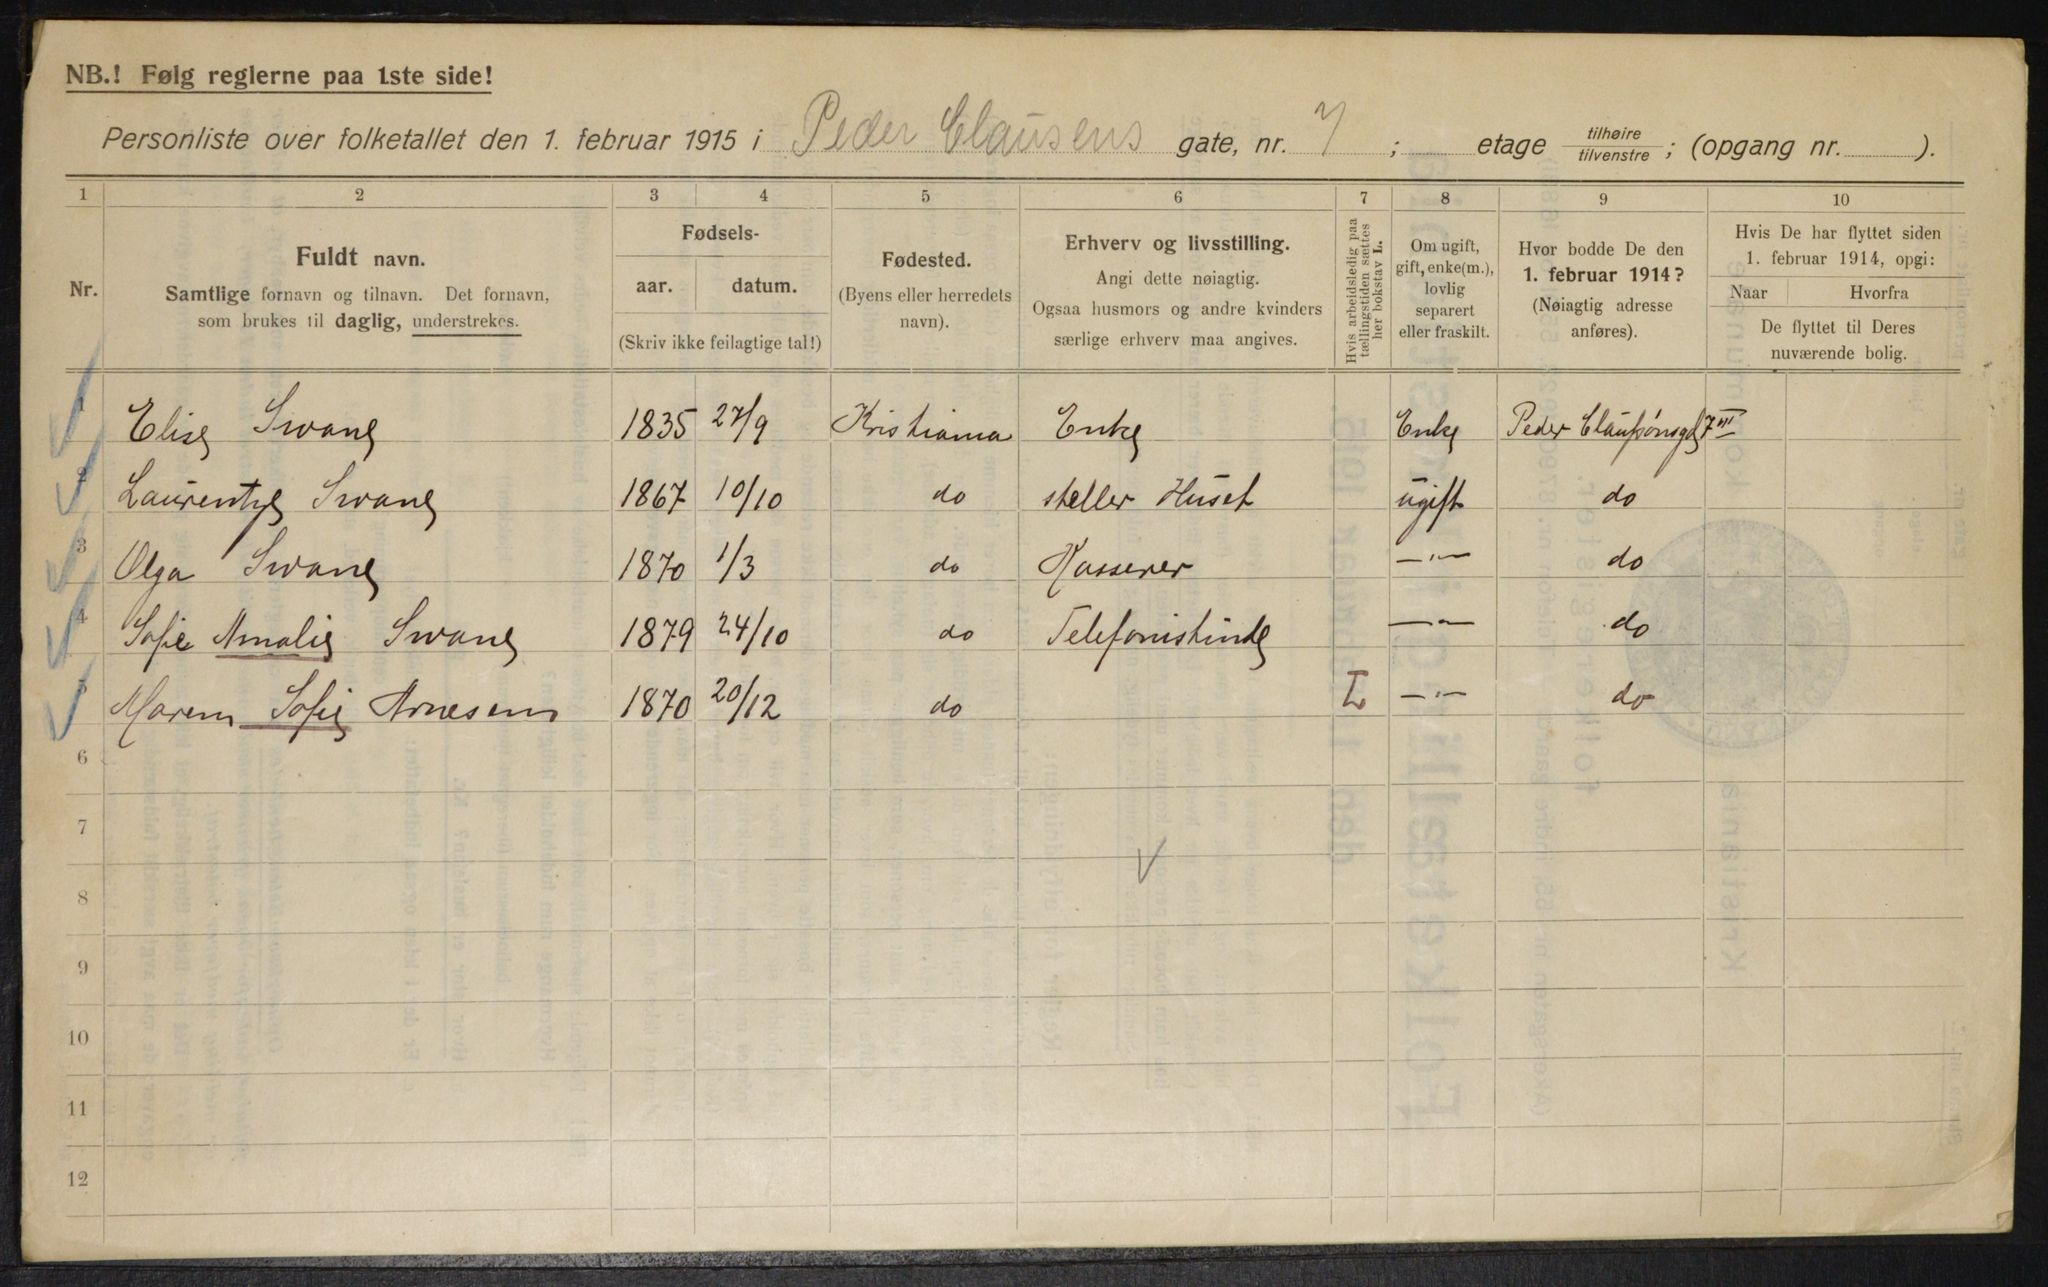 NB.! Følg reglerne paa 1ste side!
Personliste over folketallet den 1. februar 1915 i Peder Clausens gate, nr. 7 ; etage tilhøire tilvenstre ; (opgang nr. ).
1 2 3 4 5 6 7 8 9 10
Nr.
Fuldt navn.
Samtlige fornavn og tilnavn. Det fornavn,
som brukes til daglig, understrekes.
Fødsels-
aar. datum.
(Skriv ikke feilagtige tal!)
Fødested.
(Byens eller herredets
navn).
Erhverv og livsstilling.
Angi dette nøiagtig.
Ogsaa husmors og andre kvinders
særlige erhverv maa angives.
Hvis arbeidsledig paa
tællingstiden sættes
her bokstav L.
Om ugift,
gift, enke(m.),
lovlig
separert
eller fraskilt.
Hvor bodde De den
1. februar 1914?
(Nøiagtig adresse
anføres).
Hvis De har flyttet siden
1. februar 1914, opgi:
Naar Hvorfra
De flyttet til Deres
nuværende bolig.
1 Elise Svane 1835 27/9 Kristiania Enke Enke Peder Claussønsgd 7 III
2 Laurentze Svane 1867 10/10 do steller Huset ugift do
3 Olga Svane 1870 1/3 do Kasserer —"— do
4 Sofie Amalie Svane 1879 24/10 do Telefonistinde —"— do
5 Maren Sofie Arnesen 1870 20/12 do L —"— do
6
7
8
9
10
11
12